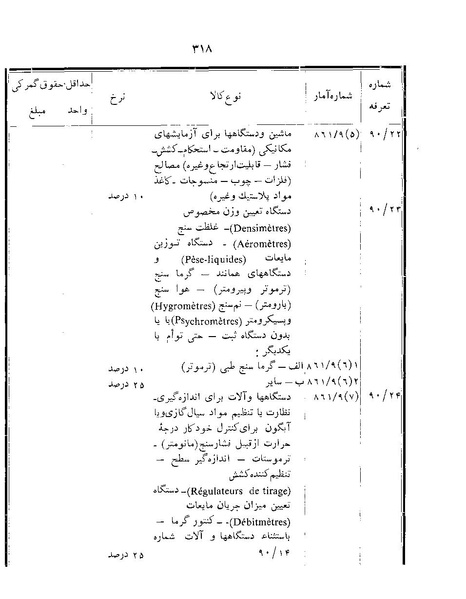 ۳۱۸
شماره تعرفه شماره‌آمار نوع‌کالا نرخ حداقل‌حقوق‌گمرکی واحد مبلغ
۹۰/۲۲ ۸۶۱/۹(۵) ماشین ودستگاهها برای آزمایشهای
مکانیکی (مقاومت ـ استحکام‌ـ کشش‌ـ
فشار — قابلیت‌ارتجاع‌وغیره) مصالح
(فلزات — چوب — منسوجات ـ کاغذ
مواد پلاستیک وغیره) ۱۰ درصد
۹۰/۲۳ دستگاه تعیین وزن مخصوص
(Densimètres)ـ غلظت سنج
(Aéromètres) ـ دستگاه تـوزیـن
مایعات (Pèse-liquides) و
دستگاههای همانند — گرما سنج
(ترموتر وپیرومتر) — هوا سنج
(بارومتر) — نم‌سنج (Hygromètres)
وپسیکرومتر (Psychromètres)با یا
بدون دستگاه ثبت — حتی توأم با
یکدیگر :
۸۶۱/۹(۶)۱ الف — گرما سنج طبی (ترموتر) ۱۰ درصد
۸۶۱/۹(۶)۲ ب — سایر ۲۵ درصد
۹۰/۲۴ ۸۶۱/۹(۷) دستگاهها وآلات برای اندازه‌گیری‌ـ
نظارت یا تنظیم مواد سیال‌گازی‌ویا
آبگون برای‌کنترل خودکار درجهٔ
حرارت ازقبیل فشارسنج(مانومتر) —
ترموستات — اندازه‌گیر سطح —
تنظیم‌کننده‌کشش
(Régulateurs de tirage)ـ دستگاه
تعیین میزان جریان مایعات
(Débitmètres). ـ کنتور گرما —
باستثناء دستگاهها و آلات شماره
۹۰/۱۴ ۲۵ درصد